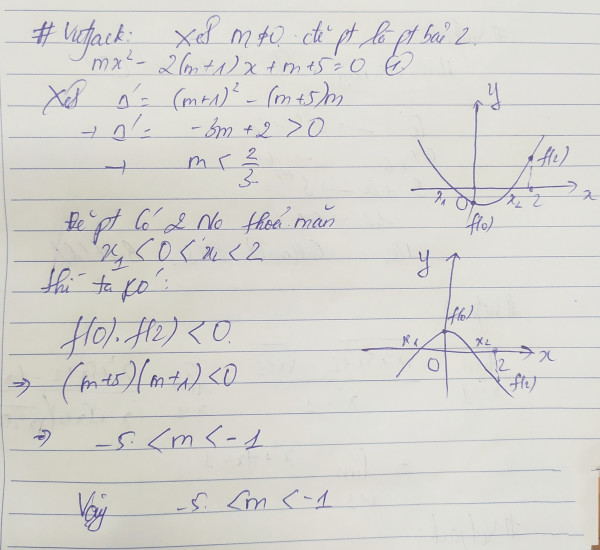 # Vutjack: Xét m≠0. để pt là pt bậc 2.
mx² - 2(m+1)x + m+5 = 0 ①
Xét Δ' = (m+1)² - (m+5)m
→ Δ' = -3m + 2 > 0
→ m < 2/3
Để pt có 2 No thoả mãn
x₁ < 0 < x₂ < 2
thì ta có:
f(0).f(2) < 0.
⇒ (m+5)(m+1) < 0
⇒ -5 < m < -1
Vậy -5 < m < -1
y
f(2)
x₁ O x₂ 2 x
f(0)
y
f(0)
x₁ x₂ x
O 2
f(2)